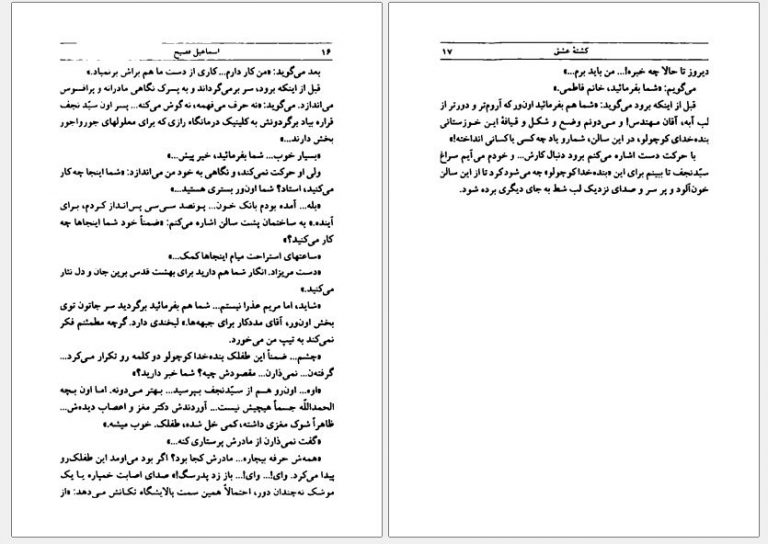 ۱۶ اسماعیل فصیح
بعد می‌گوید: «من کار دارم... کاری از دست ما هم براش برنمیاد.»
قبل از اینکه برود، سر برمی‌گرداند و به پسرک نگاهی مادرانه و پرافسوس
می‌اندازد. می‌گوید: «نه حرف می‌فهمه، نه گوش می‌کنه... پسر اون سیّد نجف
قراره بیاد برگردونش به کلینیک درمانگاه رازی که برای معلولهای جورواجور
بخش دارند...»
«بسیار خوب... شما بفرمائید، خیر پیش...»
ولی او حرکت نمی‌کند، و نگاهی به خود من می‌اندازد: «شما اینجا چه کار
می‌کنید، استاد؟ شما اون‌ور بستری هستید...»
«بله... آمده بودم بانک خون... پونصد سی‌سی پس‌انداز کردم، برای
آینده.» به ساختمان پشت سالن اشاره می‌کنم: «ضمناً خود شما اینجاها چه
کار می‌کنید؟»
«ساعتهای استراحت میام اینجاها کمک...»
«دست مریزاد. انگار شما هم دارید برای بهشت قدس برین جان و دل نثار
می‌کنید.»
«شاید، اما مریم عذرا نیستم... شما هم بفرمائید برگردید سر جاتون توی
بخش اون‌ور، آقای مددکار برای جبهه‌ها.» لبخندی دارد. گرچه مطمئنم فکر
نمی‌کند به تیپ من می‌خورد.
«چشم... ضمناً این طفلک بنده‌خدا کوچولو دو کلمه رو تکرار می‌کرد...
گرفته‌ن... نمی‌ذارن... مقصودش چیه؟ شما خبر دارید؟»
«اوه... اون‌رو هم از سیّدنجف بپرسید... بهتر می‌دونه. اما اون بچه
الحمداللّه جسماً هیچیش نیست... آوردندش دکتر مغز و اعصاب دیده‌ش...
ظاهراً شوک مغزی داشته، کمی خل شده، طفلک. خوب میشه.»
«گفت نمی‌ذارن از مادرش پرستاری کنه...»
«همه‌ش حرفه بیچاره... مادرش کجا بود؟ اگر بود می‌اومد این طفلک‌رو
پیدا می‌کرد. وای!... وای!... باز زد پدرسگ!» صدای اصابت خمپاره یا یک
موشک نه‌چندان دور، احتمالاً همین سمت پالایشگاه تکانش می‌دهد: «از
کشتهٔ عشق ۱۷
دیروز تا حالا چه خبره!... من باید برم...»
می‌گویم: «شما بفرمائید، خانم فاطمی.»
قبل از اینکه برود می‌گوید: «شما هم بفرمائید اون‌ور که آروم‌تر و دورتر از
لب آبه، آقان مهندس! و می‌دونم وضع و شکل و قیافهٔ این خوزستانی
بنده‌خدای کوچولو، در این سالن، شمارو یاد چه کسی یا کسانی انداخته!»
با حرکت دست اشاره می‌کنم برود دنبال کارش... و خودم می‌آیم سراغ
سیّدنجف تا ببینم برای این «بنده‌خدا کوچولو» چه می‌شود کرد تا از این سالن
خون‌آلود و پر سر و صدای نزدیک لب شط به جای دیگری برده شود.